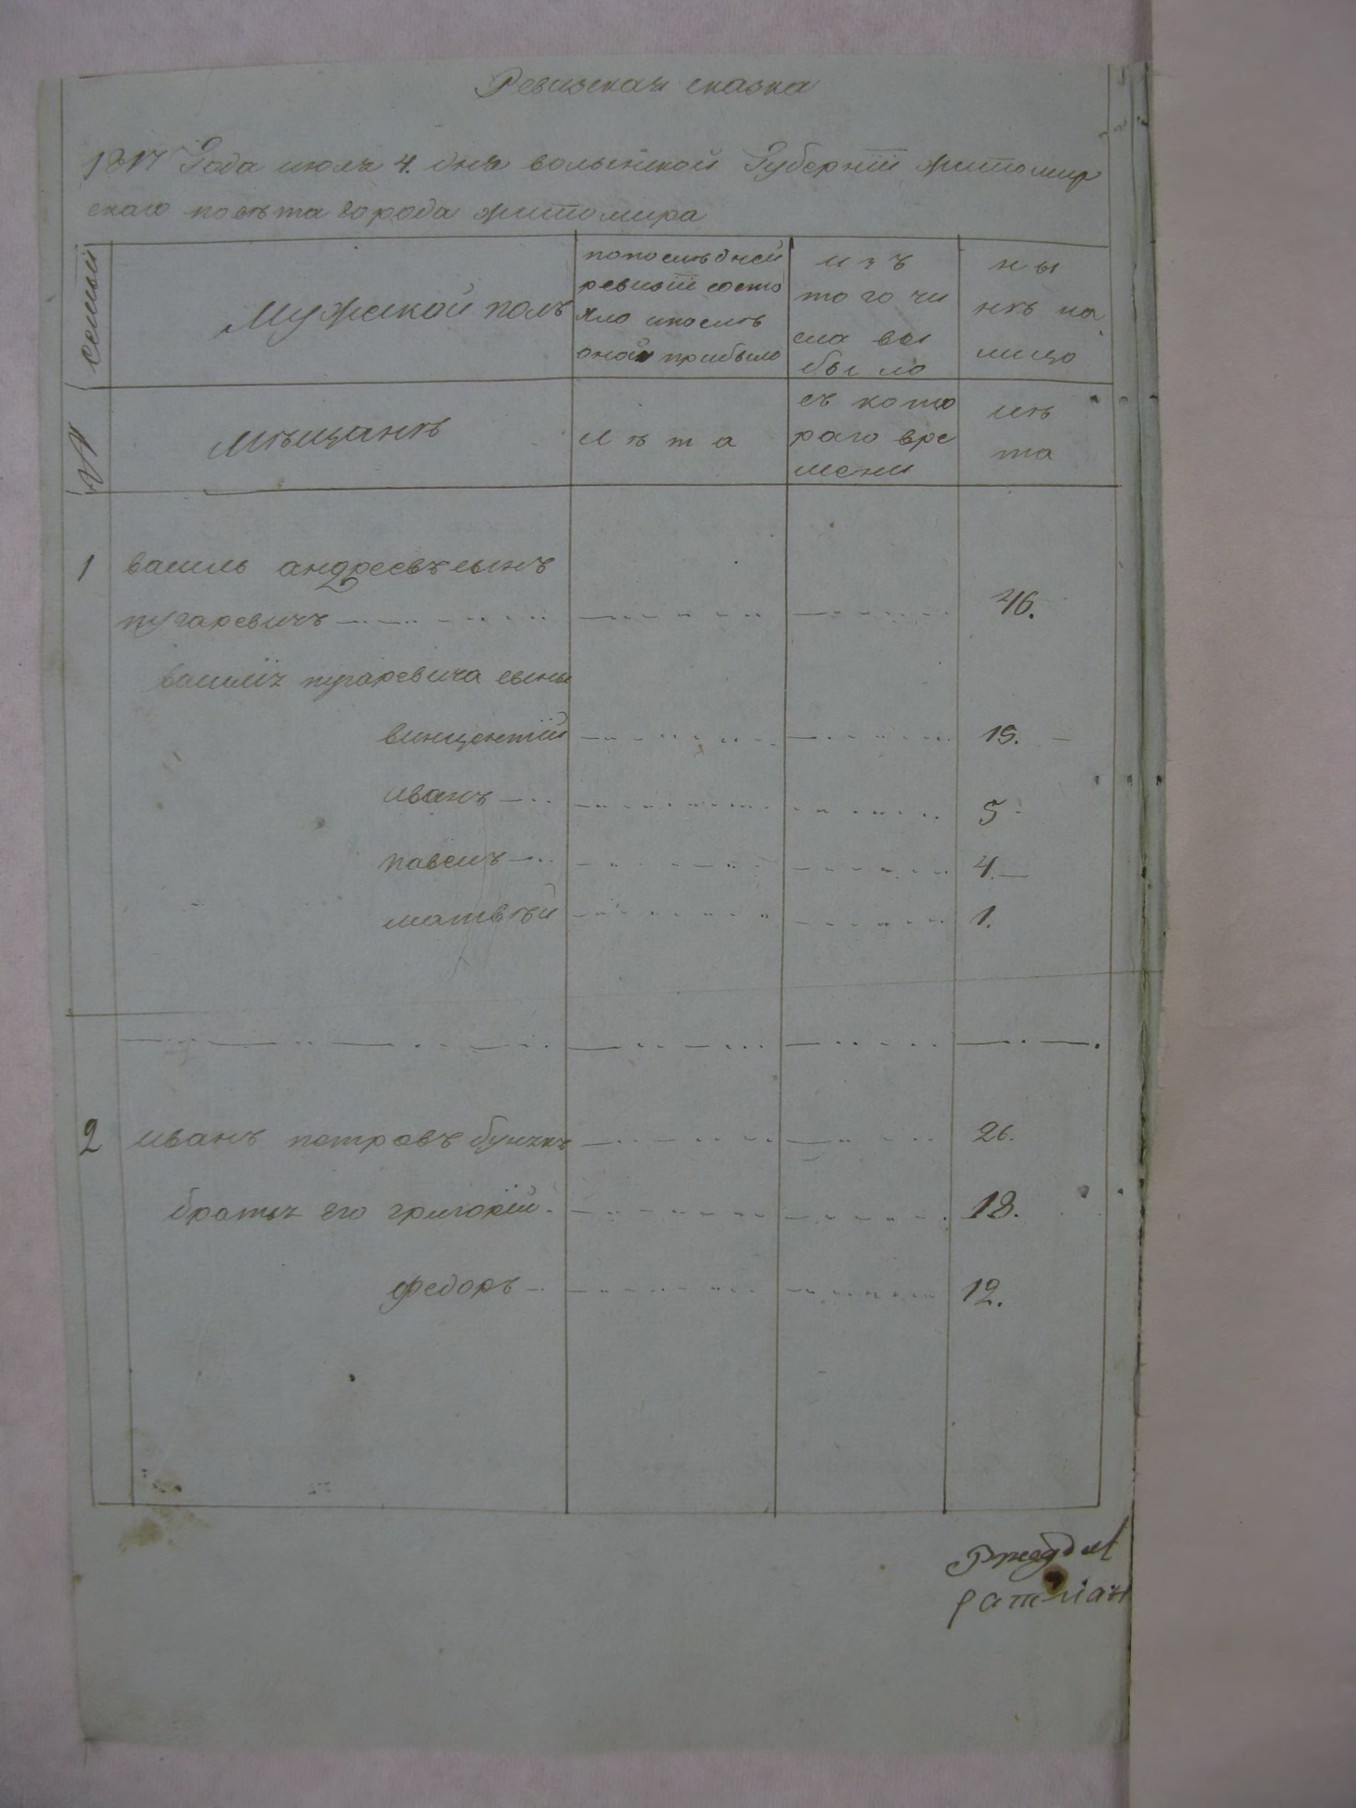 Ревизская сказка
1817 Года июля 4. дня волынской Губернїи житомир
скаго повѣта города житомира
№ семьи
Мужской полъ
попослѣдней
ревизїи состо
яло ипослѣ
оной прибыло
изъ
того чи
сла вы
было
ны
нѣ на
лицо
Мѣщанѣ
лѣта
съ кото
раго вре
мени
лѣ
та
1 василь андреевъ сынъ
пугаревичъ 46.
василїя пугаревича сыны
винцентїй 15.
иванъ 5
павелъ 4.
матвѣй 1.
2 иванъ петровъ 26.
братья его григорїй 18.
федоръ 12.